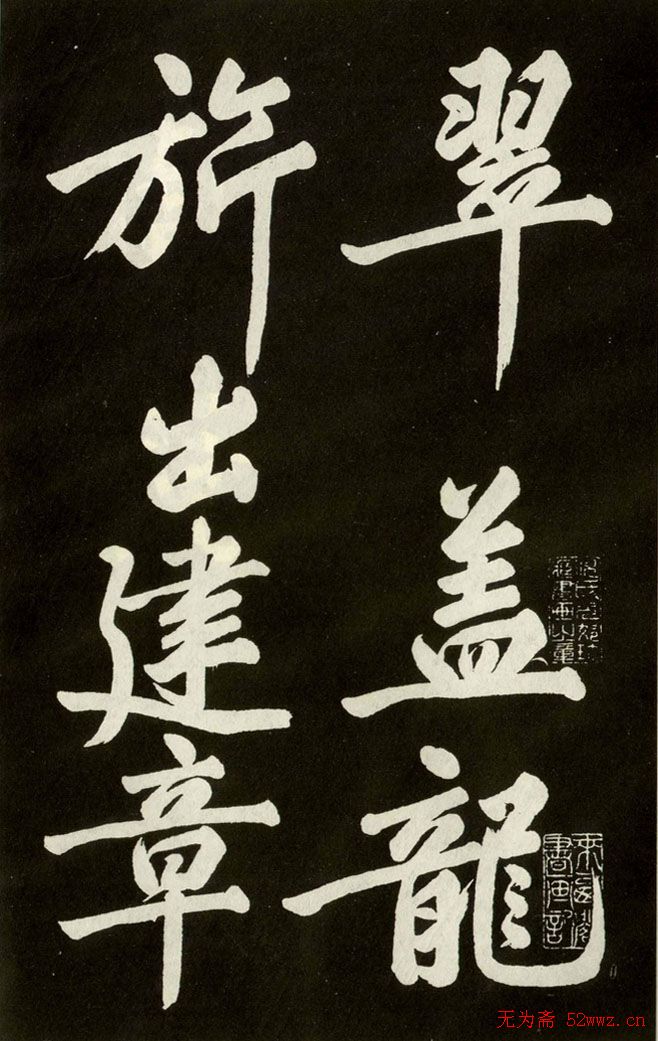 翠盖龍
旂出建章
无为斋 52wwz.cn